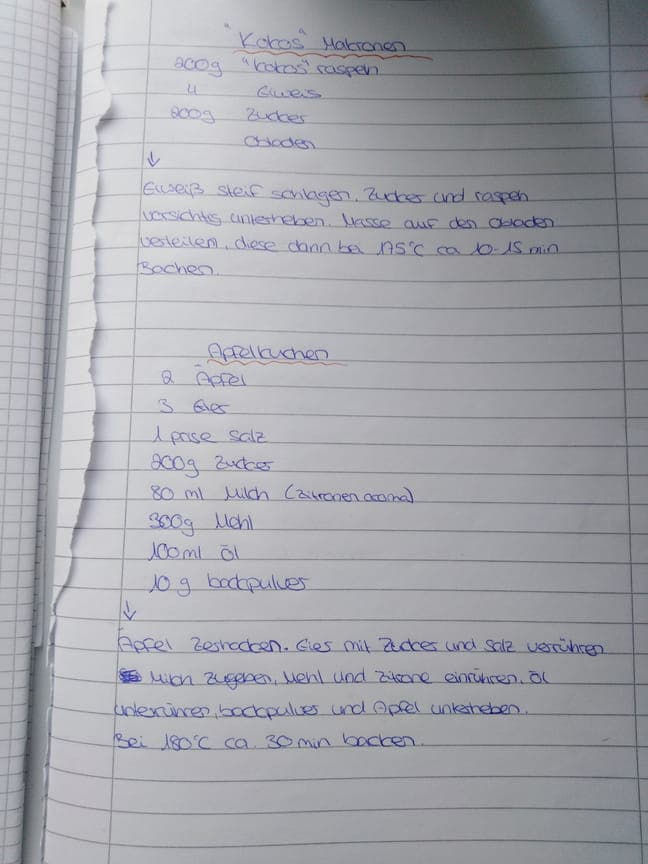 "Kokos" Makronen
200g "Kokos" raspen
4 Eiweis
200g Zucker
Obladen
↓
Eiweiß steif schlagen, Zucker und raspen
vorsichtig unterheben. Masse auf den Obladen
verteilen, diese dann bei 175°C ca 10-15 min
Backen.
Apfelkuchen
2 Äpfel
3 Eier
1 prise Salz
200g Zucker
80 ml Milch (Zitronen aroma)
300g Mehl
100ml Öl
10 g backpulver
↓
Äpfel zerhacken. Eier mit Zucker und Salz verrühren
Milch zugeben, Mehl und Zitrone einrühren. Öl
unterrühren, backpulver und Äpfel unterheben.
Bei 180°C ca. 30 min backen.